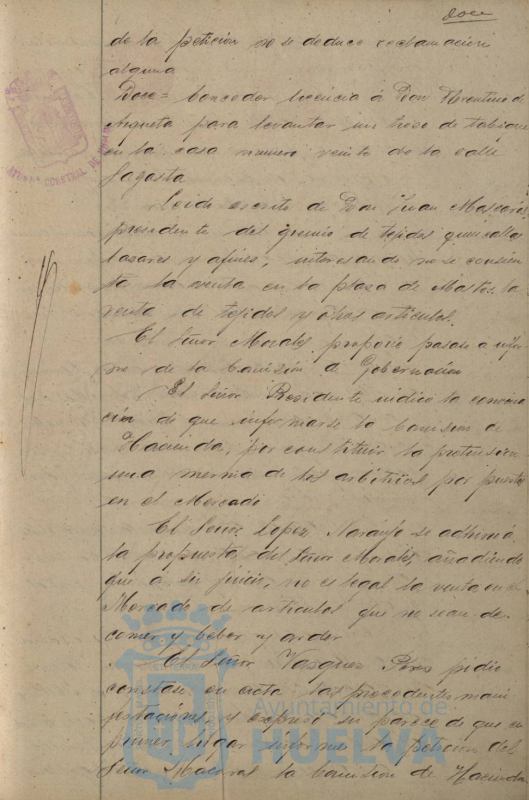 doce
de la petición no se deduce reclamación
alguna
Doce = Conceder licencia á Don Florentino de
Azqueta para levantar un trozo de tabique
en la casa numero veinte de la calle
Sagasta
Leido escrito de Don Juan Mascaros
presidente del gremio de tejidos quincallas
bazares y afines, interesando no se consien
ta la venta en la plaza de Abastos la
venta de tejidos y otros articulos.
El Señor Morales propone pasase a infor
me de la Comisión de Gobernación
El Señor Presidente indicó la convenien
cia de que informase la Comision de
Hacienda, por constituir la pretensión
una merma de los arbitrios por puestos
en el Mercado
El Señor Lopez Naranjo se adhirió á
la propuesta del Señor Morales, añadiendo
que a su juicio, no es legal la venta en el
Mercado de articulos que no sean de
comer y beber y arder
El Señor Vazquez Perez pidió
constase en acta las precedentes mani
festaciones, y expresó su parecer de que en
primer lugar informe la peticion del
Señor Mascaros la Comision de Hacienda
Ayuntamiento de
HUELVA